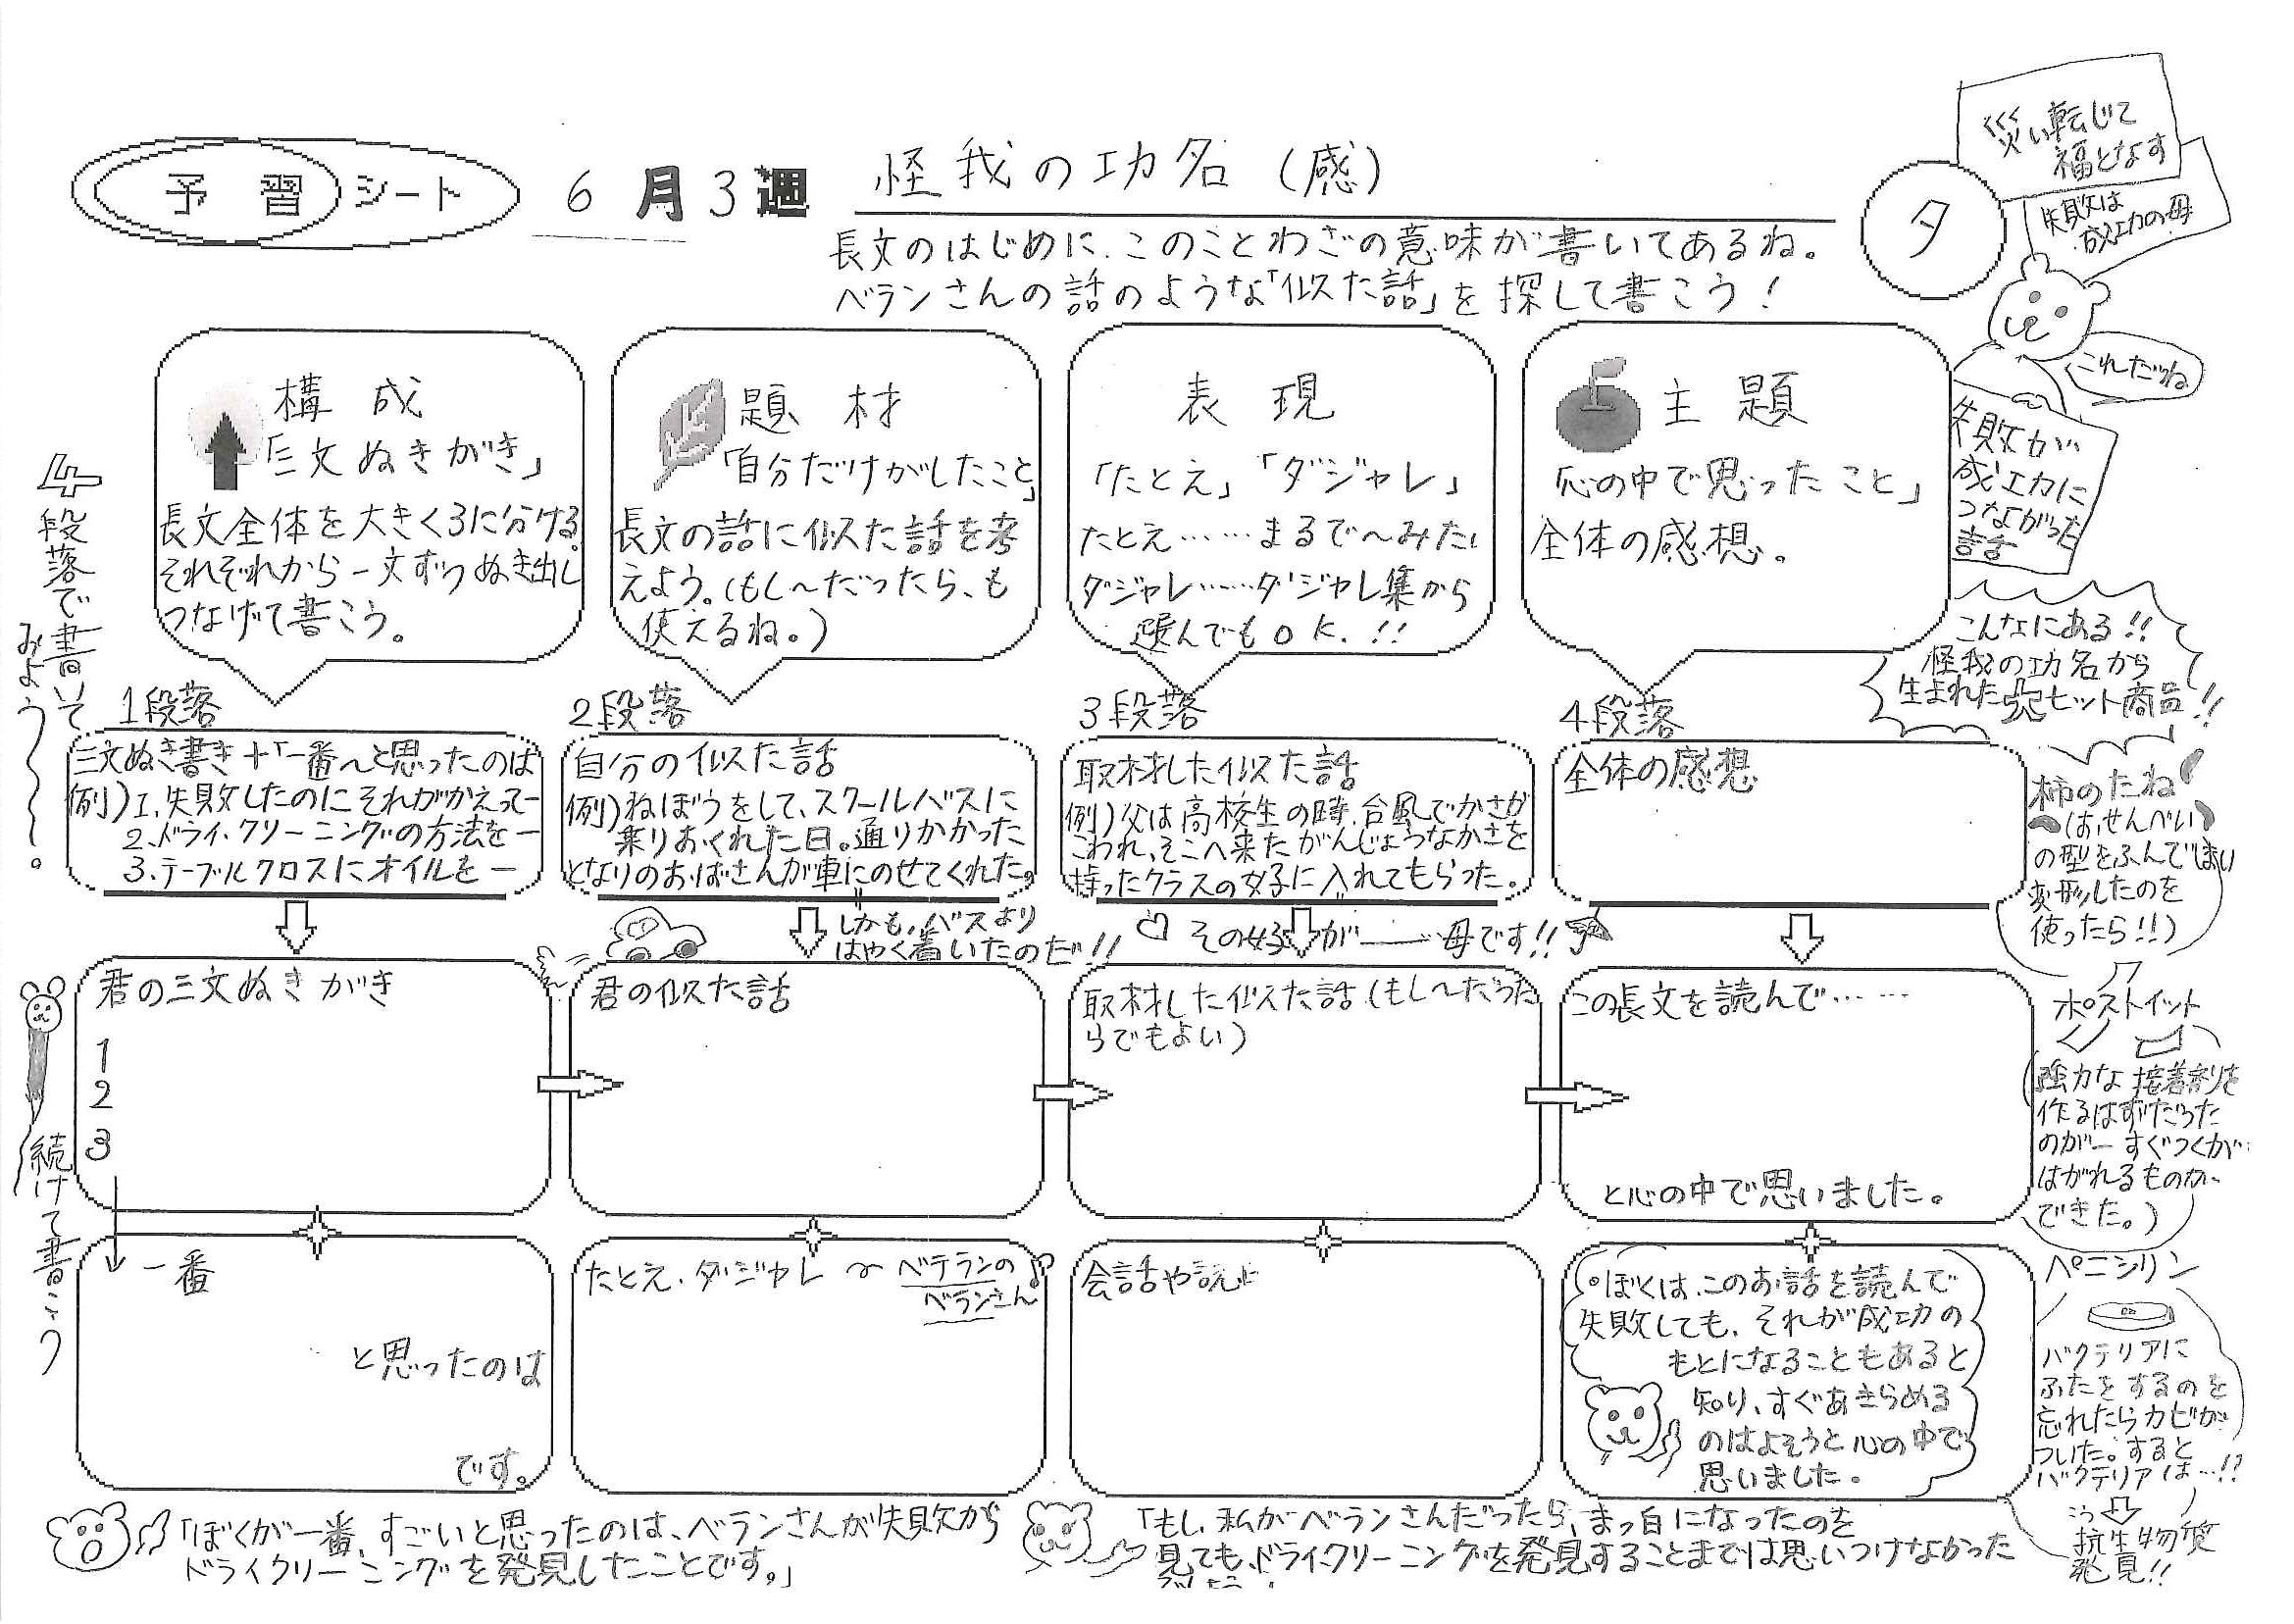 予習シート 6月3週 怪我の功名(感)
夕
長文のはじめに、このことわざの意味が書いてあるね。
ベランさんの話のような「似た話」を探して書こう!
災い転じて
福となす
失敗は
成功の母
これだね
失敗が
成功に
つながった
話
4段落で書いて
みよう〜〜〜。
構成
「三文ぬきがき」
長文全体を大きく3に分ける。
それぞれから一文ずつぬき出し
つなげて書こう。
題材
「自分だけがしたこと」
長文の話に似た話を考
えよう。(もし〜だったら、も
使えるね。)
表現
「たとえ」「ダジャレ」
たとえ……まるで〜みたい
ダジャレ……ダジャレ集から
選んでもOK.!!
主題
「心の中で思ったこと」
全体の感想。
こんなにある!!
怪我の功名から
生まれた大ヒット商品!!
1段落
三文ぬき書き+「一番〜と思ったのは
例)1.失敗したのにそれがかえって—
2.ドライ・クリーニングの方法を—
3.テーブルクロスにオイルを—
2段落
自分の似た話
例)ねぼうをして、スクールバスに
乗りおくれた日。通りかかった
となりのおばさんが車にのせてくれた。
しかも、バスより
はやく着いたのだ!!
3段落
取材した似た話
例)父は高校生の時、台風でかさが
こわれ、そこへ来たがんじょうなかさを
持ったクラスの女子に入れてもらった。
その女子が——母です!!
4段落
全体の感想
柿のたね
(おせんべい
の型をふんでしまい
変形したのを
使ったら!!)
続けて書こう
君の三文ぬきがき
1
2
3
君の似た話
取材した似た話(もし〜だった
らでもよい)
この長文を読んで……
と心の中で思いました。
ポストイット
(強力な接着剤を
作るはずだった
のが—すぐつくが
はがれるものが、
できた。)
一番
と思ったのは
です。
たとえ、ダジャレ〜ベテランの
ベランさん
会話や説
ぼくは、このお話を読んで
失敗しても、それが成功の
もとになることもあると
知り、すぐあきらめる
のはよそうと心の中で
思いました。
ペニシリン
バクテリアに
ふたをするのを
忘れたらカビが
ついた。すると
バクテリアは…!?
抗生物質
発見!!
「ぼくが一番、すごいと思ったのは、ベランさんが失敗から
ドライクリーニングを発見したことです。」
「もし、私がベランさんだったら、まっ白になったのを
見ても、ドライクリーニングを発見することまでは思いつけなかった